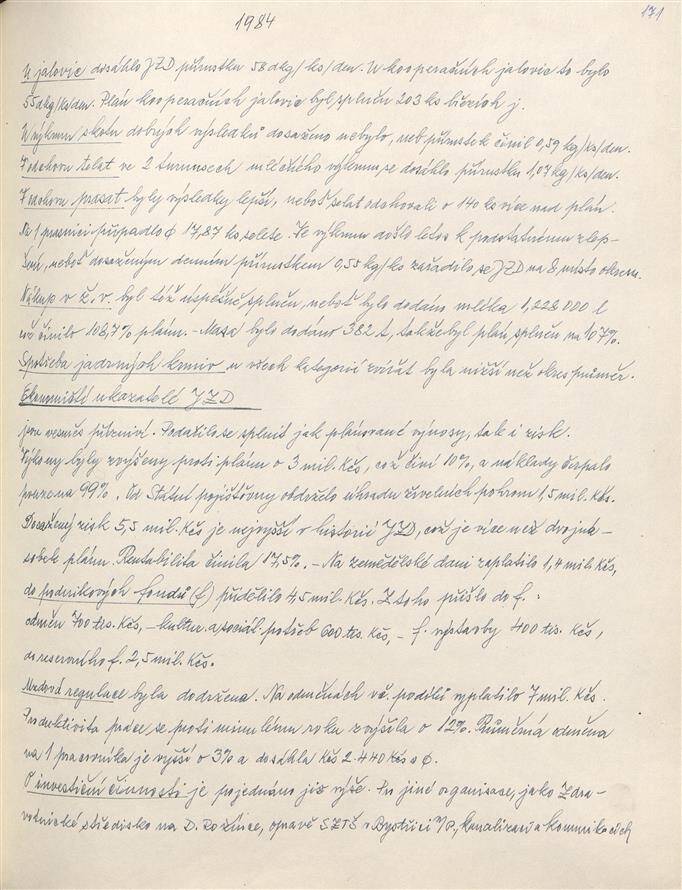 1984
171
U jalovic dosáhlo JZD přírustku 58 dkg/ks/den. U kooperačních jalovic to bylo
55 dkg/ks/den. Plán kooperačních jalovic byl splněn 203 ks březích j.
Ve výkrmu skotu dobrých výsledků dosaženo nebylo, neb přírustek činil 0,59 kg/ks/den.
V odchovu telat ve 2 turnusech mléčného výkrmu se dosáhlo přírustku 1,07 kg/ks/den.
V odchovu prasat byly výsledky lepší, neboť selat odchovali o 140 ks více nad plán.
Na 1 prasnici připadlo ϕ 17,87 ks selete. Ve výkrmu došlo letos k podstatnému zlep-
šení, neboť dosaženým denním přírustkem 0,55 kg/ks zařadilo se JZD na 8. místo okresu.
Nákup v ž.v. byl též úspěšně splněn, neboť bylo dodáno mléka 1,228 000 l
což činilo 108,7% plánu. - Masa bylo dodáno 382 t, takže byl plán splněn na 107%.
Spotřeba jadrných krmiv u všech kategorií zvířat byla nižší než okres. průměr.
Ekonomičtí ukazatelé JZD
jsou vesměs příznivi. Podařilo se splnit jak plánované výnosy, tak i zisk.
Výkony byly zvýšeny proti plánu o 3 mil. Kčs, což činí 10%, a náklady čerpalo
pouze na 99%. Od Státní pojišťovny obdrželo úhradu živelních pohrom 1,5 mil. Kčs.
Dosažený zisk 5,5 mil. Kčs je nejvyšší v historii JZD, což je více než dvojná-
sobek plánu. Rentabilita činila 17,5%. - Na zemědělské dani zaplatilo 1,4 mil. Kčs,
do podnikových fondů (f) přidělilo 4,5 mil. Kčs. Z toho přišlo do f. :
odměn 700 tis. Kčs, - kultur. a sociál. potřeb 600 tis. Kčs, - f. výstavby 400 tis. Kčs,
do reservního f. 2,5 mil. Kčs.
Mzdová regulace byla dodržena. Na odměnách vč. podílů vyplatilo 7 mil. Kčs.
Produktivita práce se proti minulému roku zvýšila o 12%. Průměrná odměna
na 1 pracovníka je vyšší o 3% a dosáhla Kčs 2.440 Kčs ϕ.
O investiční činnosti je pojednáno již výše. Pro jiné organisace, jako Zdra-
votnické středisko na D. Rožínce, opravě SZTŠ v Bystřici n/P., kanalizaci a komunikacích